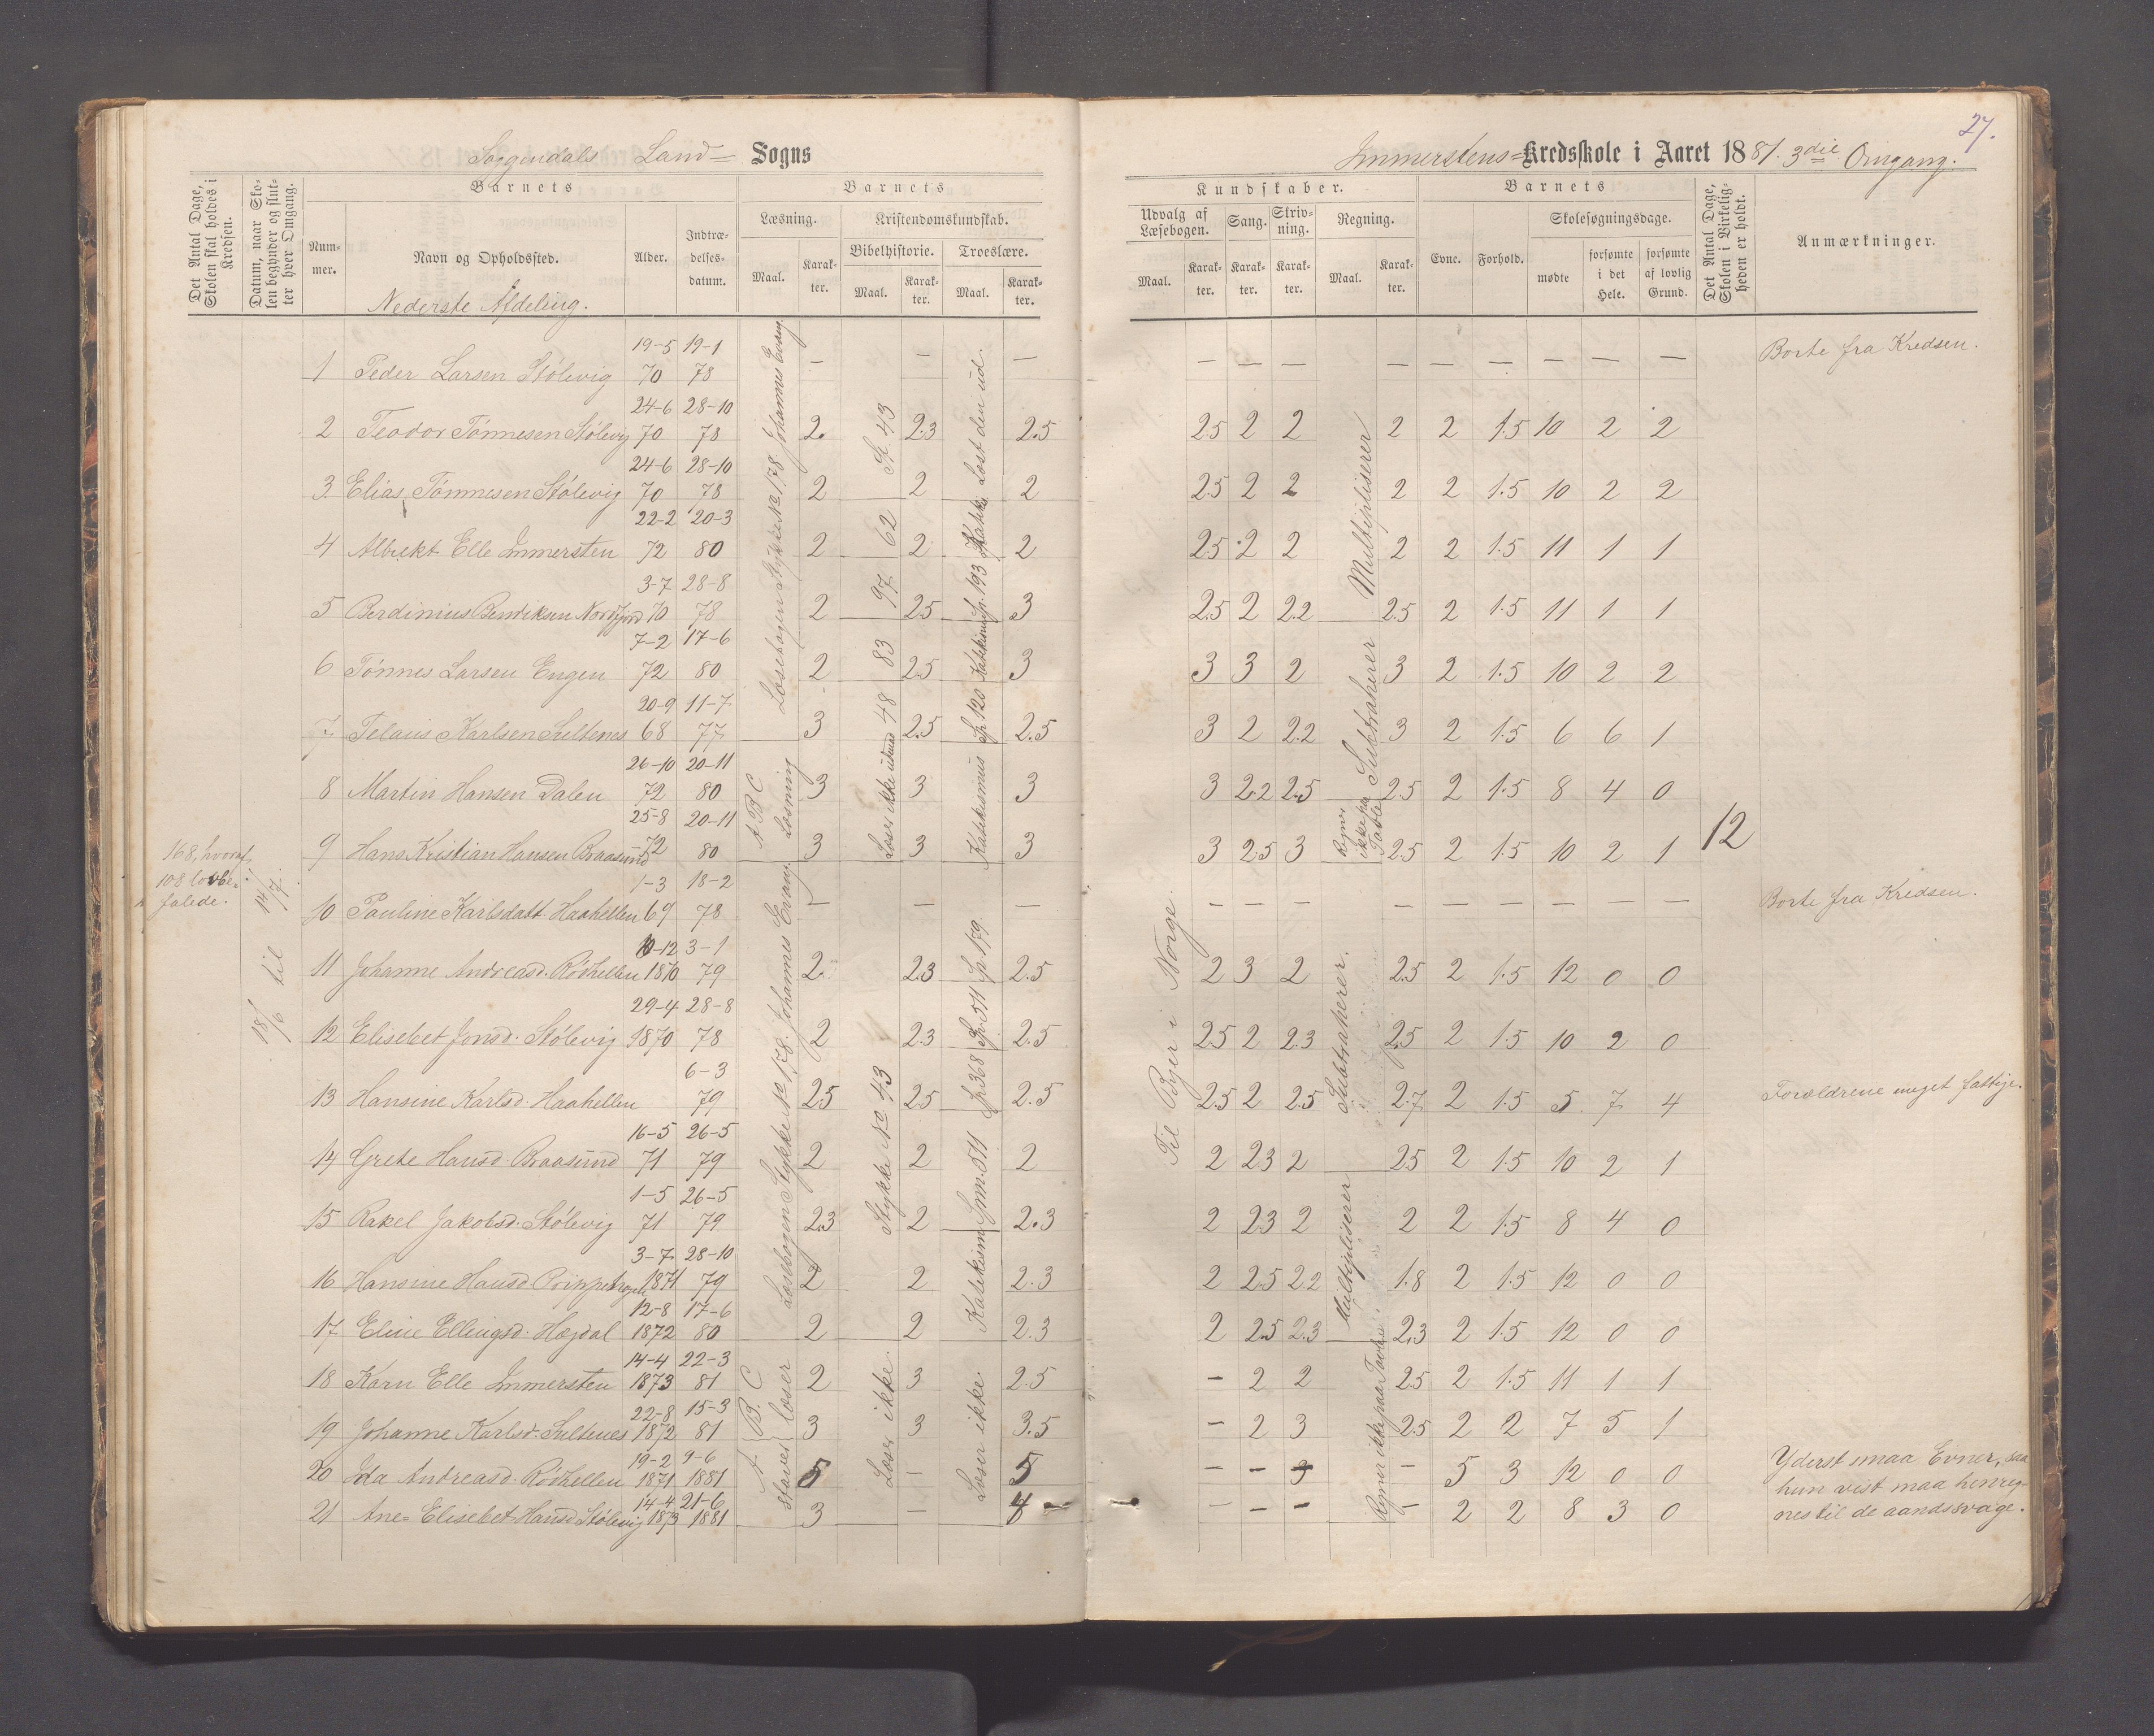 27.
Soggendals Land= Sogns
Immerstens=Kredsskole i Aaret 1881. 3die Omgang.
Det Antal Dage, Skolen skal holdes i Kredsen.
Datum, naar Skolen begynder og slutter hver Omgang.
Barnets
Nummer.
Navn og Opholdssted.
Alder.
Indtrædelsesdatum.
Barnets
Læsning.
Maal.
Karakter.
Kristendomskundskab.
Bibelhistorie.
Maal.
Karakter.
Troeslære.
Maal.
Karakter.
Kundskaber.
Udvalg af Læsebogen.
Maal.
Karakter.
Sang.
Karakter.
Skrivning.
Karakter.
Regning.
Maal.
Karakter.
Barnets
Evne.
Forhold.
Skolesøgningsdage.
mødte
forsømte i det Hele.
forsømte af lovlig Grund.
Det Antal Dage, Skolen i Virkeligheden er holdt.
Anmærkninger.
Nederste Afdeling.
1 Peder Larsen Stölevig 19-5 70 19-1 78 — — — — — — — — — — — — Borte fra Kredsen.
2 Teodor Tönnesen Stölevig 24-6 70 28-10 78 2. 2.3 2.5 2.5 2 2 2 2 1.5 10 2 2
3 Elias Tönnesen Stölevig 24-6 70 28-10 78 2 2 2 2.5 2 2 2 2 1.5 10 2 2
4 Albrekt Elle Immersten 22-2 72 20-3 80 2 2 2 2.5 2 2 2 2 1.5 11 1 1
5 Berdinius Bendiksen Nordfjord 3-7 70 28-8 78 2 2.5 3 2.5 2 2.2 2.5 2 1.5 11 1 1
6 Tönnes Larsen Engen 7-2 72 17-6 80 2 2.5 3 3 3 2 3 2 1.5 10 2 2
7 Telaus Karlsen Sultenes 20-9 68 11-7 77 3 2.5 2.5 3 2 2.2 3 2 1.5 6 6 1
8 Martin Hansen Dalen 26-10 72 20-11 80 3 3 3 3 2.2 2.5 2.5 2 1.5 8 4 0
9 Hans Kristian Hansen Braasund 25-8 72 20-11 80 3 3 3 3 2.5 3 2.5 2 1.5 10 2 1
12
168, hvoraf 108 lovbefalede.
18/6 til 14/7.
10 Pauline Karlsdatt. Haahellen 1-3 69 18-2 78 — — — — — — — — — — — — Borte fra Kredsen.
11 Johanne Andreasd. Rödhellen 10-12 1870 3-1 79 2. 2.3 2.5 2 3 2 2.5 2 1.5 12 0 0
12 Elisebet Jonsd. Stölevig 29-4 1870 28-8 78 2 2.3 2.5 2.5 2 2.3 2.5 2 1.5 10 2 0
13 Hansine Karlsd. Haahellen 6-3 79 2.5 2.5 2.5 2.5 2 2.5 2.7 2 1.5 5 7 4 Forældrene meget fattige.
14 Grete Hansd. Braasund 16-5 71 26-5 79 2 2 2 2 2.3 2 2.5 2 1.5 10 2 1
15 Rakel Jakobsd. Stölevig 1-5 71 26-5 79 2.3 2 2.3 2 2.3 2 2 2 1.5 8 4 0
16 Hansine Hansd. 3-7 1871 28-10 79 2 2 2.3 2 2.5 2.2 1.8 2 1.5 12 0 0
17 Eline Ellingsd. Hægdal 12-8 1872 17-6 80 2 2 2.3 2 2.5 2.3 2.3 2 1.5 12 0 0
18 Karn Elle Immersten 14-4 1873 22-3 81 2 3 2.5 — 2 2 2.5 2 1.5 11 1 1
19 Johanne Karlsd. Sultenes 22-8 1872 15-3 81 3 3 3.5 — 2 3 2.5 2 2 7 5 1
20 Ida Andreasd. Rödhellen 19-2 1871 9-6 1881 5 — 5 — — 3 — 5 3 12 0 0 Yderst smaa Evner, saa hun vist maa henregnes til de aandssvage.
21 Ane Elisebet Hansd Stölevig 14-4 1873 21-6 1881 3 — 4 — — — — — 2 2 8 3 0
Læsebogen Stykke No 178. Johannes Evang.
A B C Læsning
Læsebogen Stykke No 178. Johannes Evang.
A. B. C. Staver læser
St. 43
62
97
83
48
Læser ikke udenad
Stykke No 43
Læser ikke.
Læst den ud.
Sp. 193
Sp. 120
Katekismus
Sp. 179
Sp. 511
Sp. 368
Spm. 511
Katekism
Læser ikke.
Til Byer i Norge.
Multipliserer
Subtraherer
Regner ikke paa Tavle
Subtraherer.
Multipliserer
Regner ikke paa Tavle.